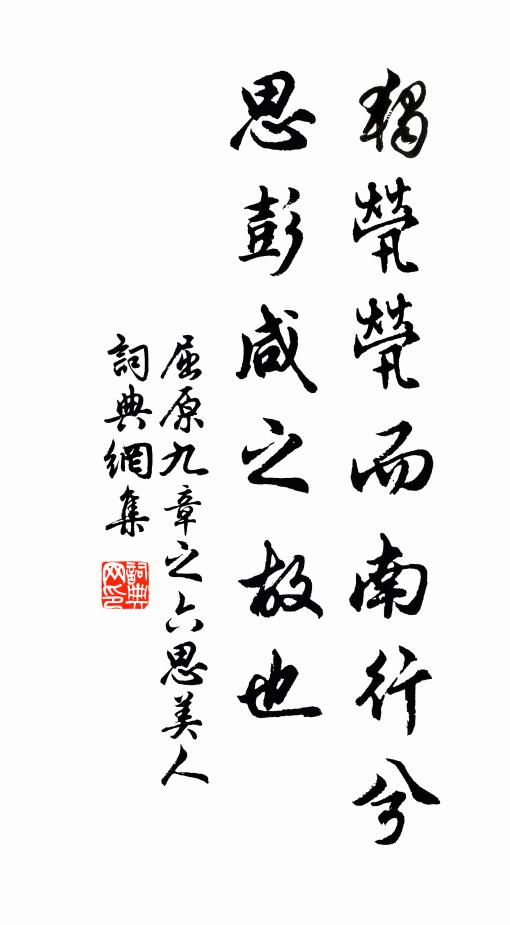 獨茕茕而南行兮
思彭咸之故也
屈原九章之六思美人
詞典網集
詞典网印